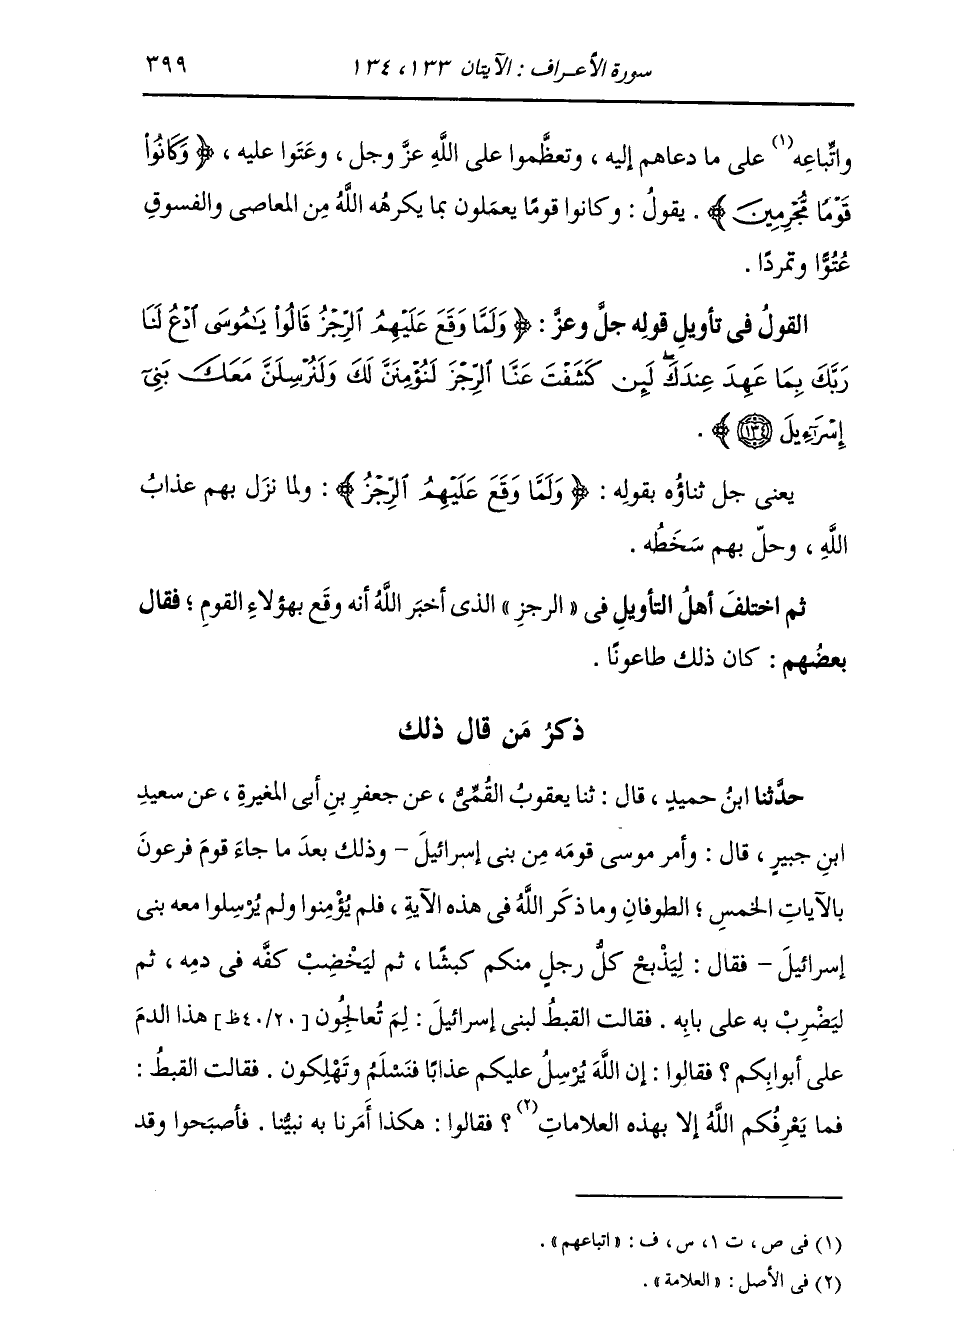 سورة الأعراف : الآيتان ١٣٣، ١٣٤ ٣٩٩
واتِّباعِه(١) على ما دعاهم إليه ، وتعظَّموا على اللَّهِ عزَّ وجل ، وعَتَوا عليه ، ﴿ وَكَانُوا۟
قَوْمًا مُّجْرِمِينَ ﴾ . يقولُ : وكانوا قومًا يعمَلون بما يكرهُه اللَّهُ مِن المعاصى والفسوقِ
عُتُوًّا وتمردًا .
القولُ فى تأويلِ قولِه جلَّ وعزَّ : ﴿ وَلَمَّا وَقَعَ عَلَيْهِمُ ٱلرِّجْزُ قَالُوا۟ يَٰمُوسَى ٱدْعُ لَنَا
رَبَّكَ بِمَا عَهِدَ عِندَكَ ۖ لَئِن كَشَفْتَ عَنَّا ٱلرِّجْزَ لَنُؤْمِنَنَّ لَكَ وَلَنُرْسِلَنَّ مَعَكَ بَنِىٓ
إِسْرَٰٓءِيلَ ١٣٤ ﴾ .
يعنى جل ثناؤُه بقولِه : ﴿ وَلَمَّا وَقَعَ عَلَيْهِمُ ٱلرِّجْزُ ﴾ : ولما نزَل بهم عذابُ
اللَّهِ ، وحلّ بهم سَخَطُه .
ثم اختلفَ أهلُ التأويلِ فى « الرجزِ » الذى أخبَر اللَّهُ أنه وقَع بهؤلاءِ القومِ ؛ فقال
بعضُهم : كان ذلك طاعونًا .
ذكرُ مَن قال ذلك
حدَّثنا ابنُ حميدٍ ، قال : ثنا يعقوبُ القُمِّىُّ ، عن جعفرِ بنِ أبى المغيرةِ ، عن سعيدِ
ابنِ جبيرٍ ، قال : وأمر موسى قومَه مِن بنى إسرائيلَ - وذلك بعدَ ما جاءَ قومَ فرعونَ
بالآياتِ الخمسِ ؛ الطوفانِ وما ذكَر اللَّهُ فى هذه الآيةِ ، فلم يُؤْمِنوا ولم يُرْسِلوا معه بنى
إسرائيلَ - فقال : لِيَذْبحْ كلُّ رجلٍ منكم كبشًا ، ثم ليَخْضِبْ كفَّه فى دمِه ، ثم
ليَضْرِبْ به على بابِه . فقالت القبطُ لبنى إسرائيلَ : لِمَ تُعالجُون [٤٠/٢٠ظ] هذا الدمَ
على أبوابِكم ؟ فقالوا : إن اللَّهَ يُرْسِلُ عليكم عذابًا فنَسْلَمُ وتَهْلِكون . فقالت القبطُ :
فما يَعْرِفُكم اللَّهُ إلا بهذه العلاماتِ(٢) ؟ فقالوا : هكذا أمَرنا به نبيُّنا . فأصبَحوا وقد
(١) فى ص ، ت ١، س ، ف : « اتباعهم » .
(٢) فى الأصل : « العلامة » .